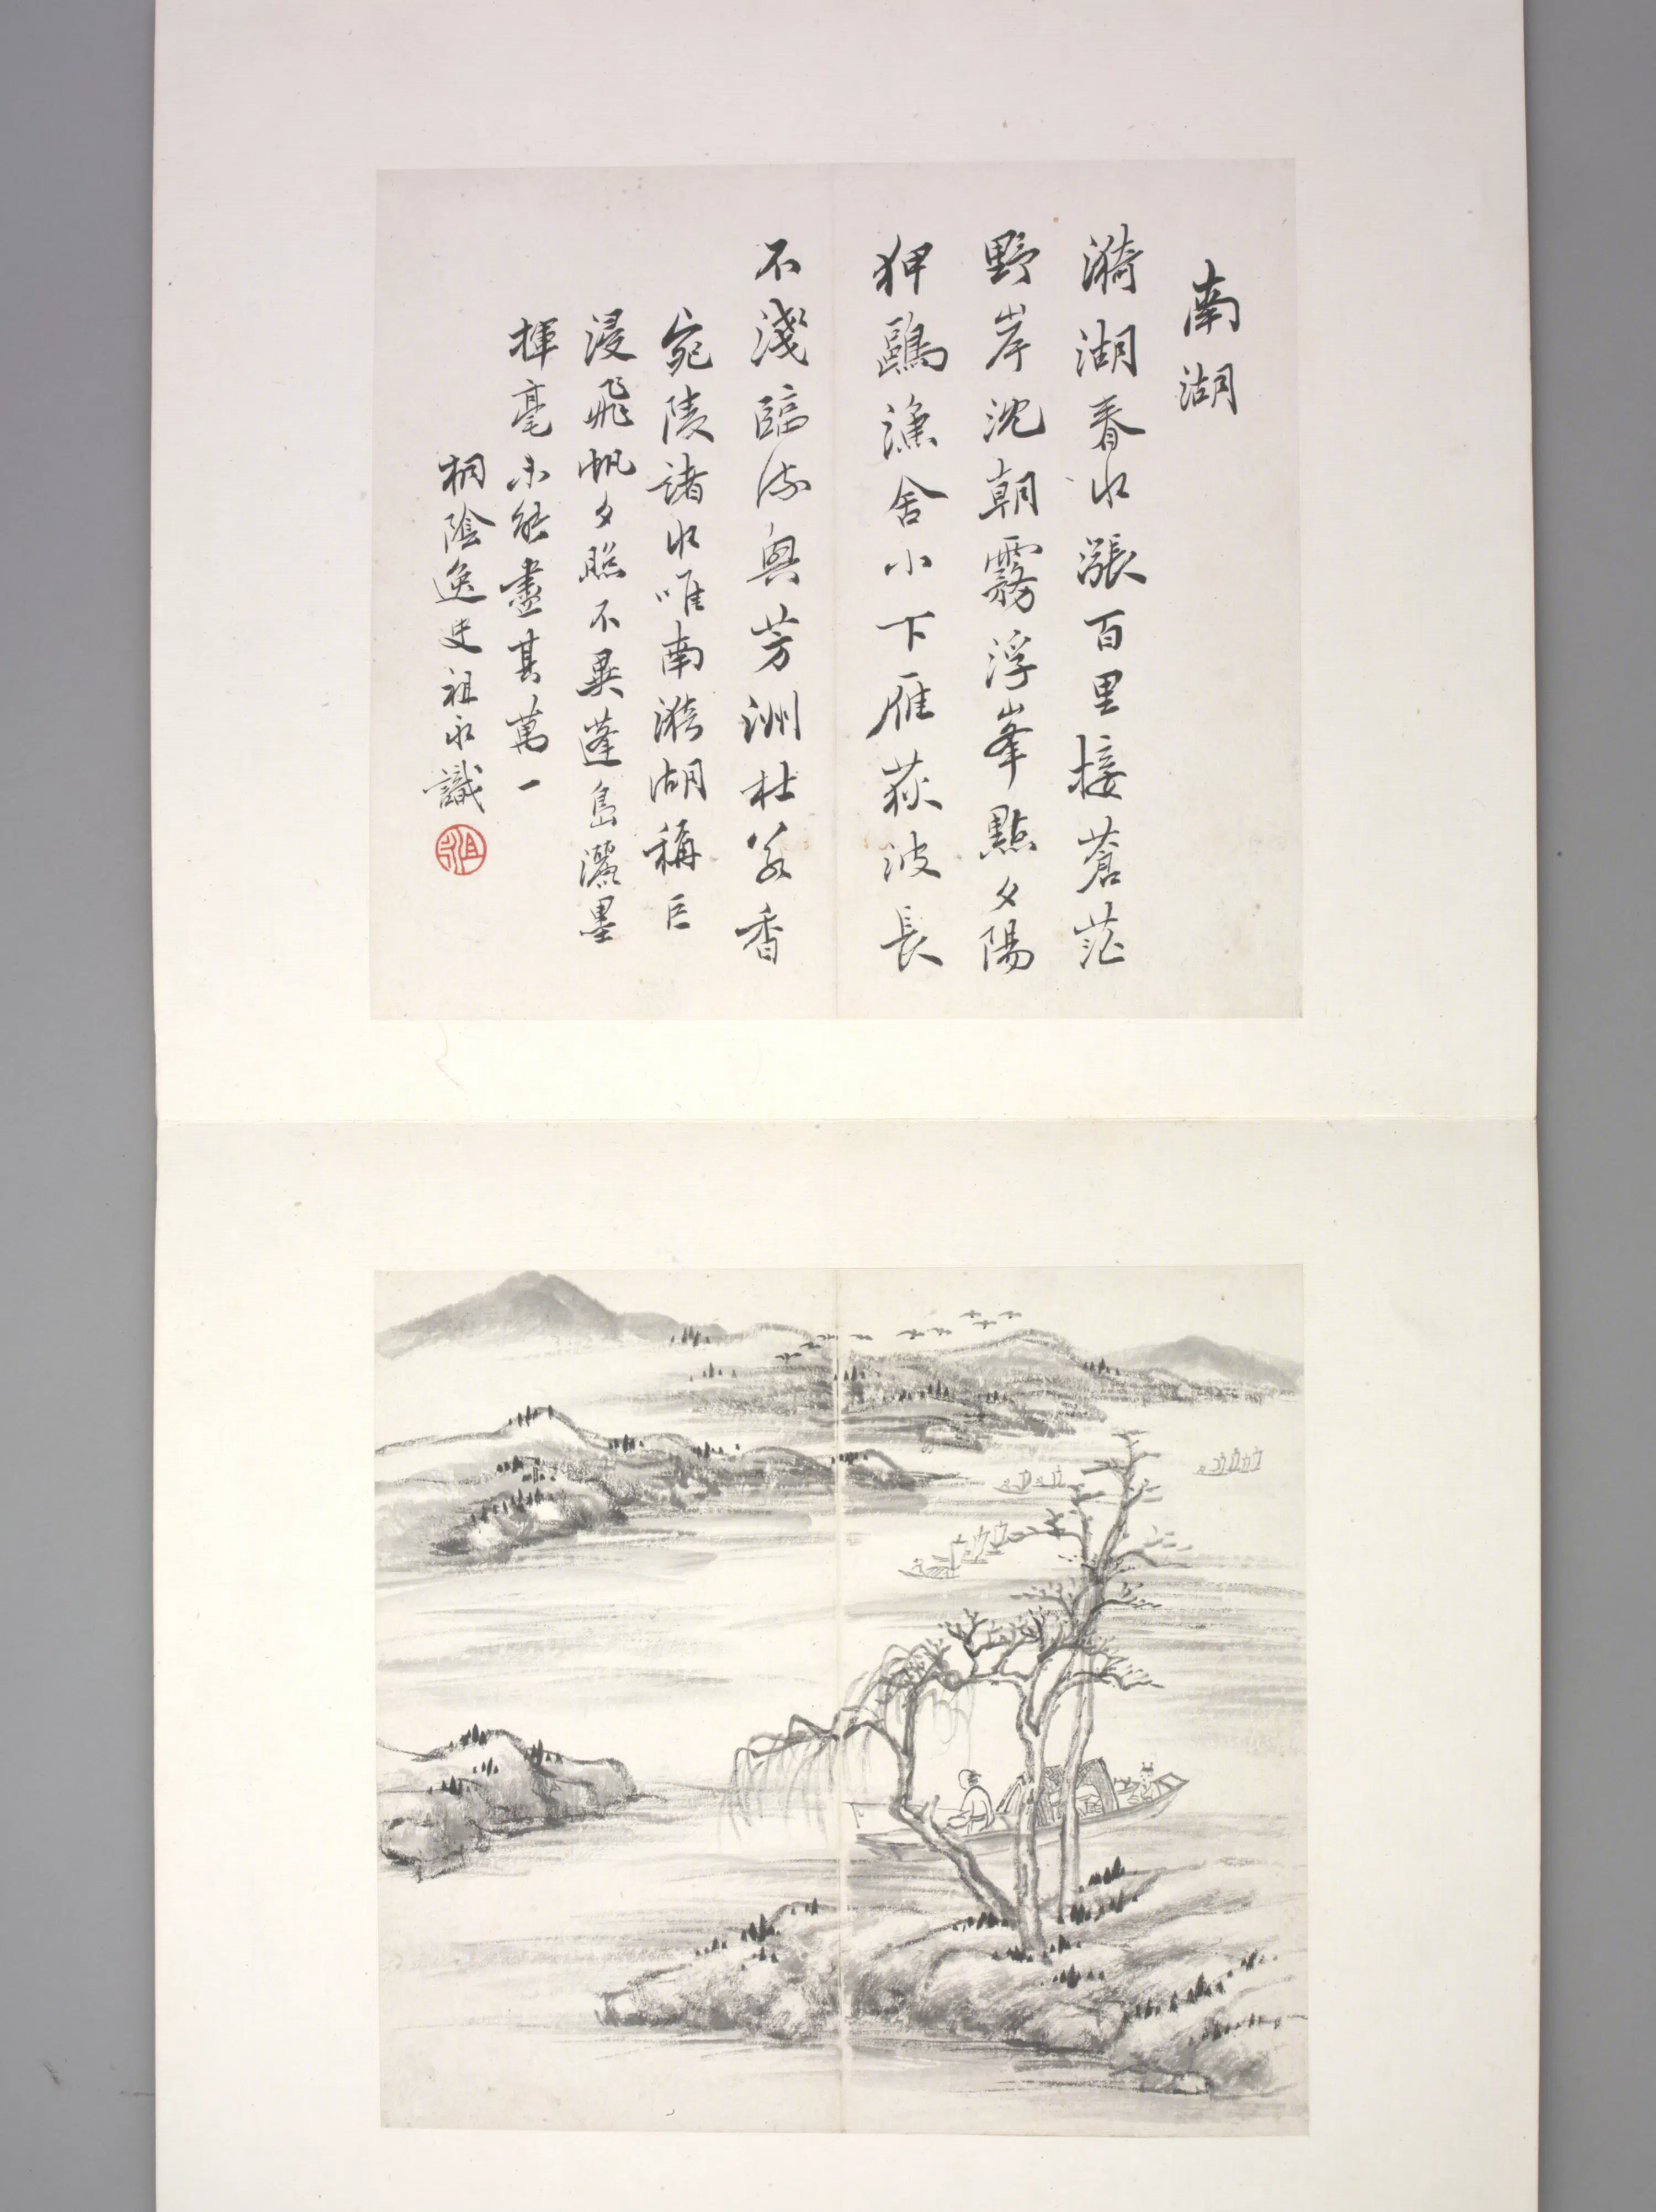 南湖
漪湖春水漲百里接蒼茫
野岸沈朝霧浮峯點夕陽
狎鷗漁舍小下雁荻波長
不淺臨流興芳洲杜若香
宛陵諸水唯南漪湖稱巨
浸飛帆夕照不異蓬島灑墨
揮毫未能盡其萬一
桐陰逸史祖永識